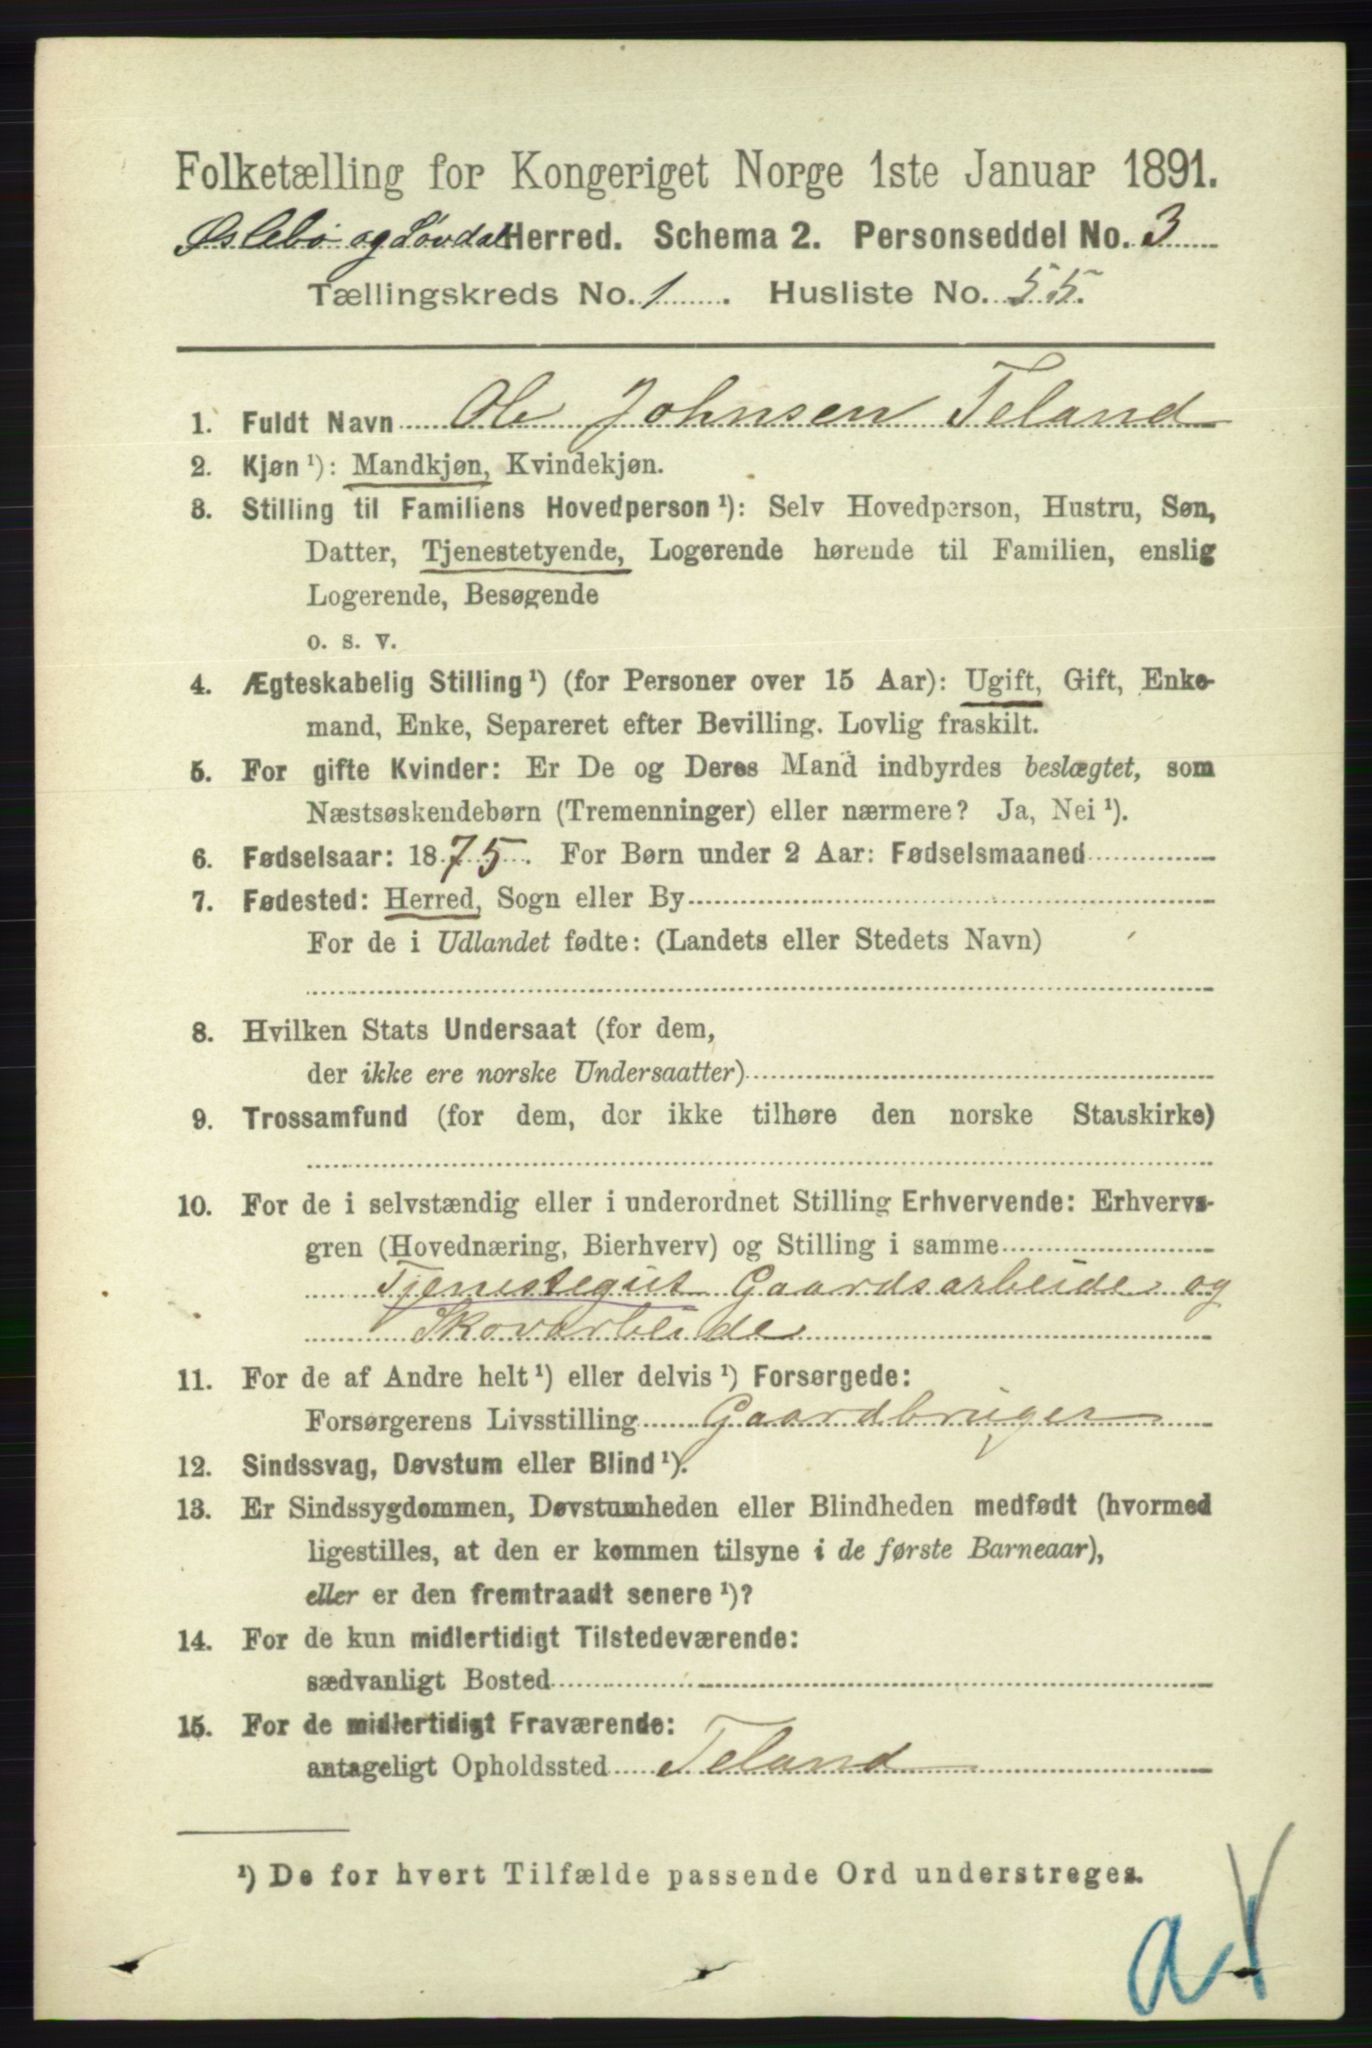 Folketælling for Kongeriget Norge 1ste Januar 1891.
Øslebø og Løvdal Herred. Schema 2. Personseddel No. 3
Tællingskreds No. 1. Husliste No. 55.
1. Fuldt Navn Ole Johnsen Teland
2. Kjøn ¹): Mandkjøn, Kvindekjøn.
3. Stilling til Familiens Hovedperson ¹): Selv Hovedperson, Hustru, Søn,
Datter, Tjenestetyende, Logerende hørende til Familien, enslig
Logerende, Besøgende
o. s. v.
4. Ægteskabelig Stilling ¹) (for Personer over 15 Aar): Ugift, Gift, Enke-
mand, Enke, Separeret efter Bevilling. Lovlig fraskilt.
5. For gifte Kvinder: Er De og Deres Mand indbyrdes beslægtet, som
Næstsøskendebørn (Tremenninger) eller nærmere? Ja, Nei ¹).
6. Fødselsaar: 1875. For Børn under 2 Aar: Fødselsmaaned
7. Fødested: Herred, Sogn eller By
For de i Udlandet fødte: (Landets eller Stedets Navn)
8. Hvilken Stats Undersaat (for dem,
der ikke ere norske Undersaatter)
9. Trossamfund (for dem, der ikke tilhøre den norske Statskirke)
10. For de i selvstændig eller i underordnet Stilling Erhvervende: Erhvervs-
gren (Hovednæring, Bierhverv) og Stilling i samme
Tjenestegut Gaardsarbeide og
Skovarbeide
11. For de af Andre helt ¹) eller delvis ¹) Forsørgede:
Forsørgerens Livsstilling Gaardbruger
12. Sindssvag, Døvstum eller Blind ¹).
13. Er Sindssygdommen, Døvstumheden eller Blindheden medfødt (hvormed
ligestilles, at den er kommen tilsyne i de første Barneaar),
eller er den fremtraadt senere ¹)?
14. For de kun midlertidigt Tilstedeværende:
sædvanligt Bosted
15. For de midlertidigt Fraværende:
antageligt Opholdssted Teland
¹) De for hvert Tilfælde passende Ord understreges.
a